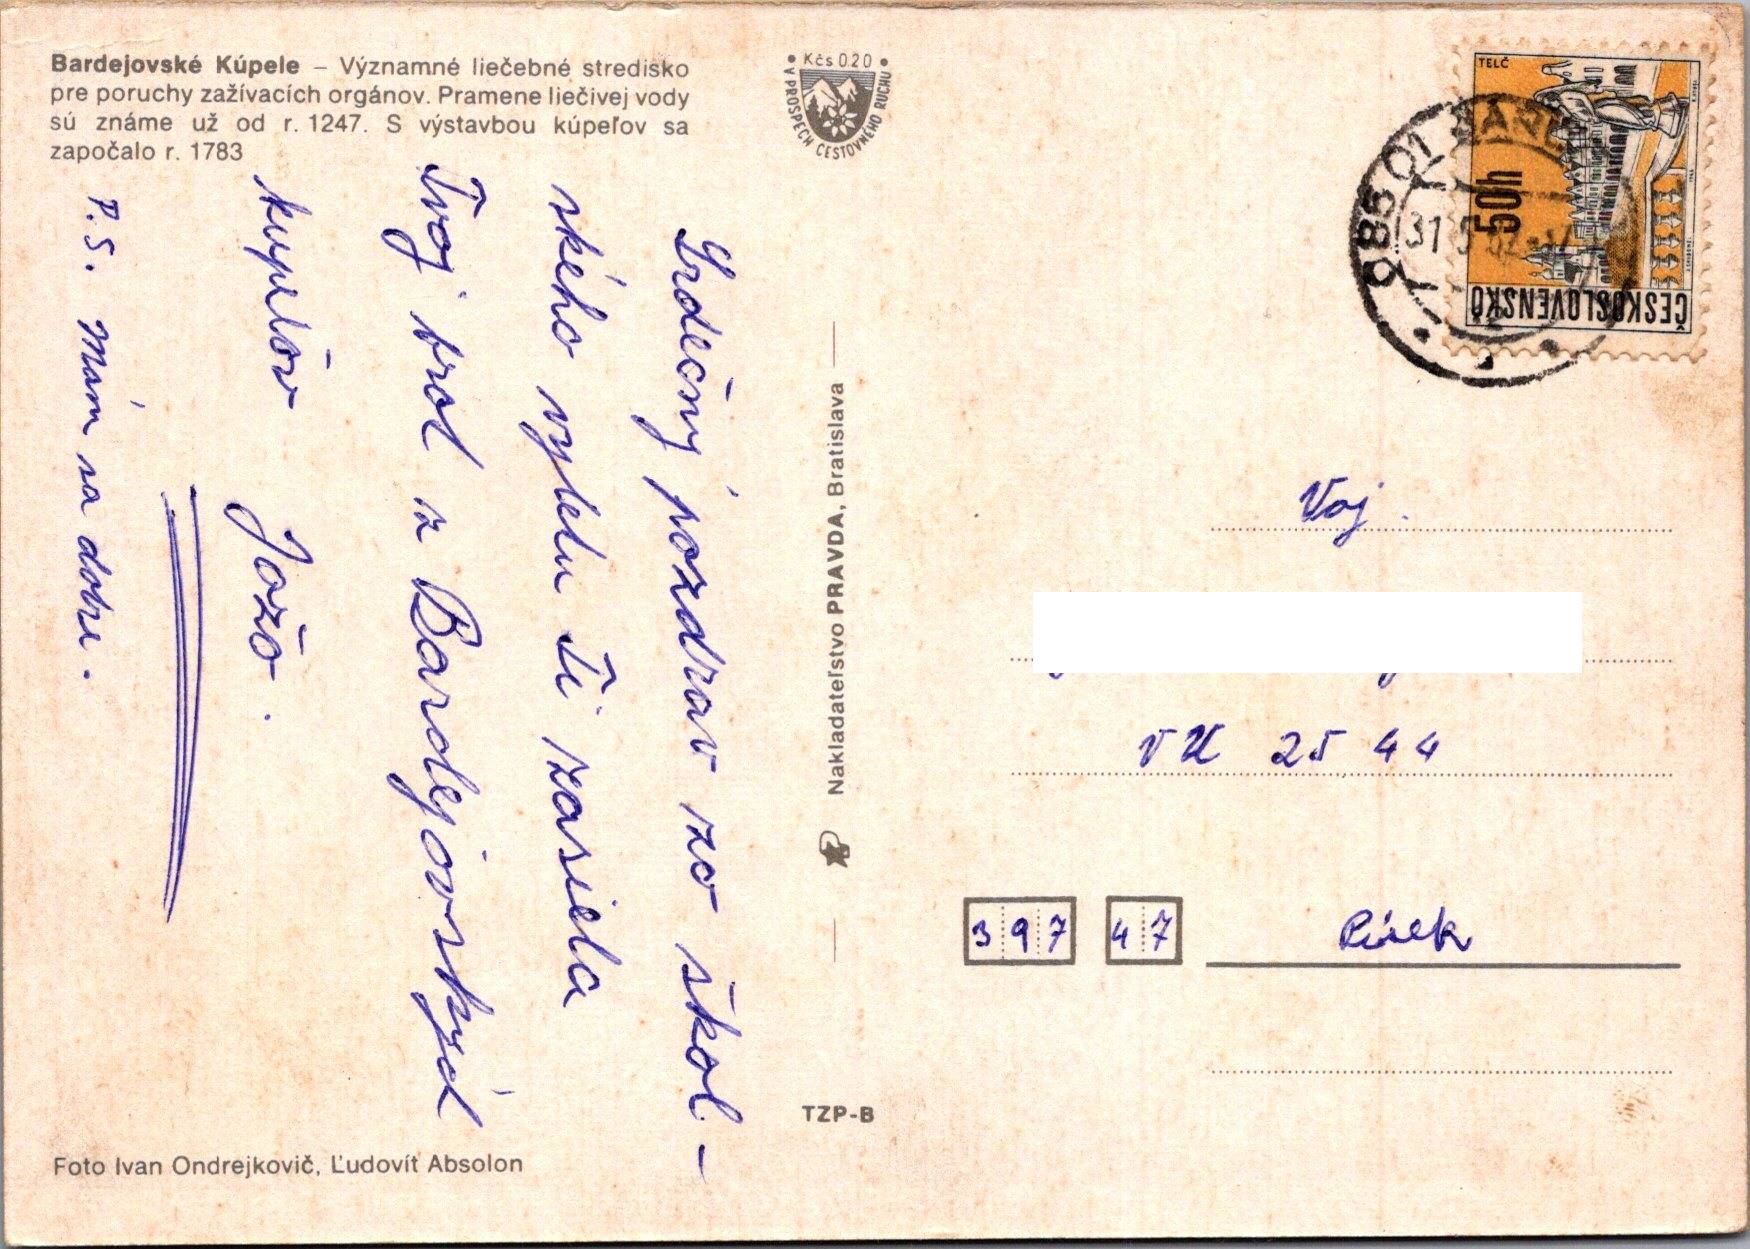 Bardejovské Kúpele – Významné liečebné stredisko
pre poruchy zažívacích orgánov. Pramene liečivej vody
sú známe už od r. 1247. S výstavbou kúpeľov sa
započalo r. 1783
Srdečný pozdrav zo škol-
ského výletu Ti zasiela
Tvoj brat z Bardejovských
kupelov Jožo.
P.S. Mám sa dobre.
Foto Ivan Ondrejkovič, Ľudovít Absolon
Kčs 020
V PROSPECH CESTOVNÉHO RUCHU
Nakladateľstvo PRAVDA, Bratislava
TZP-B
TELČ
50h
ČESKOSLOVENSKO
085 01
31 5
Voj.
VÚ 25 44
397 47 Písek